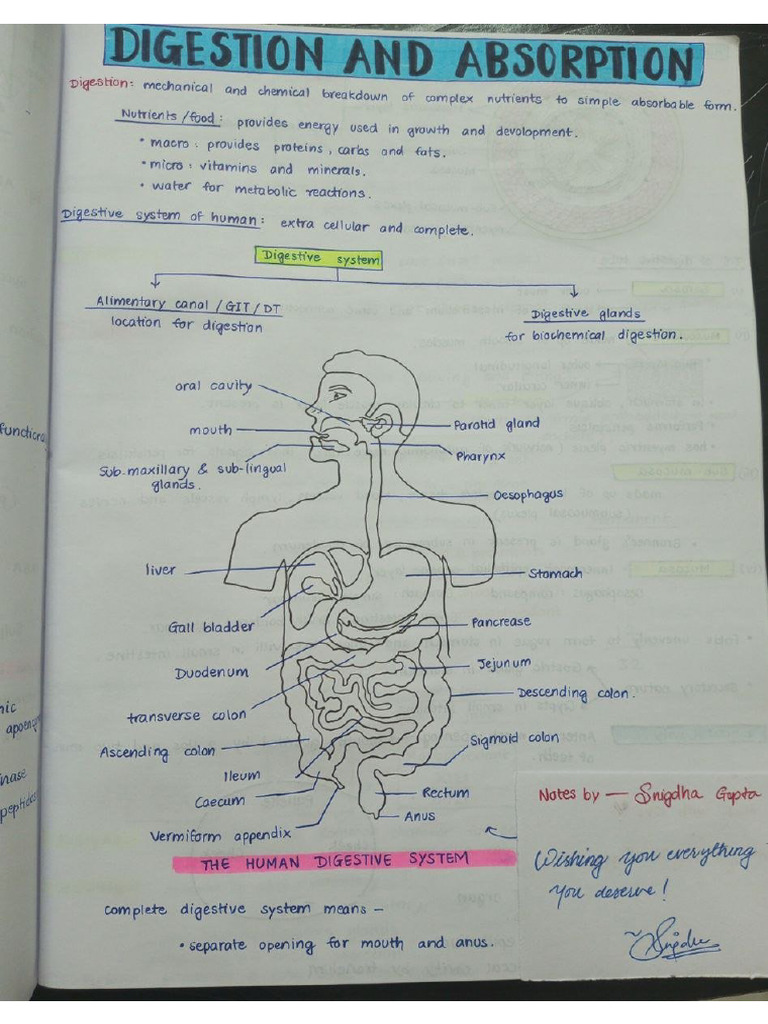 DIGESTION AND ABSORPTION
Digestion: mechanical and chemical breakdown of complex nutrients to simple absorbable form.
Nutrients/food: provides energy used in growth and devolopment.
• macro: provides proteins, carbs and fats.
• micro: vitamins and minerals.
• water for metabolic reactions.
Digestive system of human: extra cellular and complete.
Digestive system
Alimentary canal / GIT / DT
location for digestion
Digestive glands
for biochemical digestion.
oral cavity
mouth
Parotid gland
Sub-maxillary & sub-lingual
glands.
Pharynx
Oesophagus
liver
Stomach
Gall bladder
Pancrease
Duodenum
Jejunum
Descending colon.
transverse colon
Ascending colon
Sigmoid colon
Ileum
Caecum
Rectum
Anus
Vermiform appendix
THE HUMAN DIGESTIVE SYSTEM
Notes by — Snigdha Gupta
Wishing you everything
you deserve!
~Snigdha
complete digestive system means –
• separate opening for mouth and anus.
functional
peptides